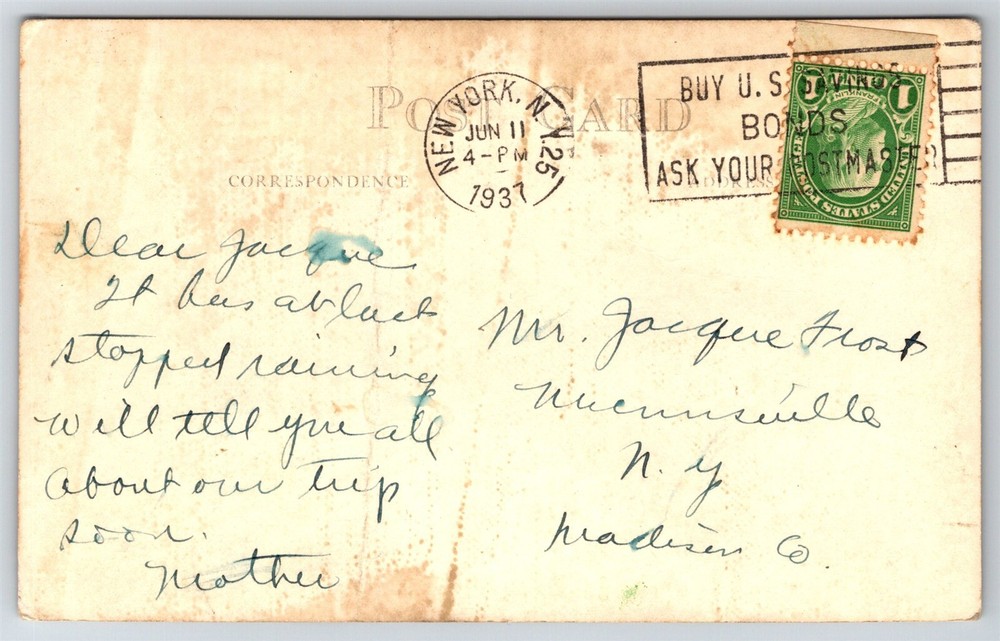 POST CARD
CORRESPONDENCE
ADDRESS
NEW YORK, N.Y. 25
JUN 11
4-PM
1937
BUY U. S. SAVINGS
BONDS
ASK YOUR POSTMASTER
UNITED STATES POSTAGE
FRANKLIN
1
Dear Jacque
It has at last
stopped raining
will tell you all
about our trip
soon.
Mother
Mr. Jacque Frost
Munnsville
N. Y
Madison Co